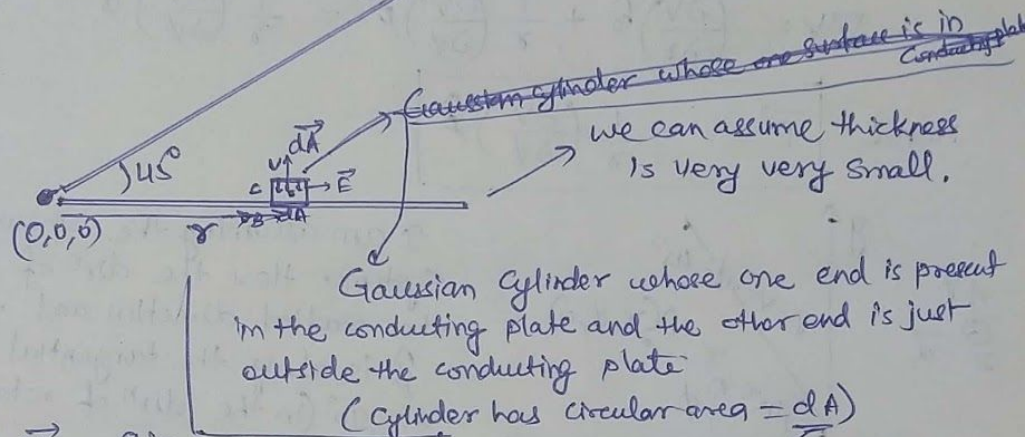 Gaussian cylinder whose one surface is in
Conducting plate
we can assume thickness
is very very small.
dA
45°
C
E
(0,0,0)
r
B
dA
Gaussian Cylinder whose one end is present
in the conducting plate and the other end is just
outside the conducting plate
(Cylinder has circular area = dA)